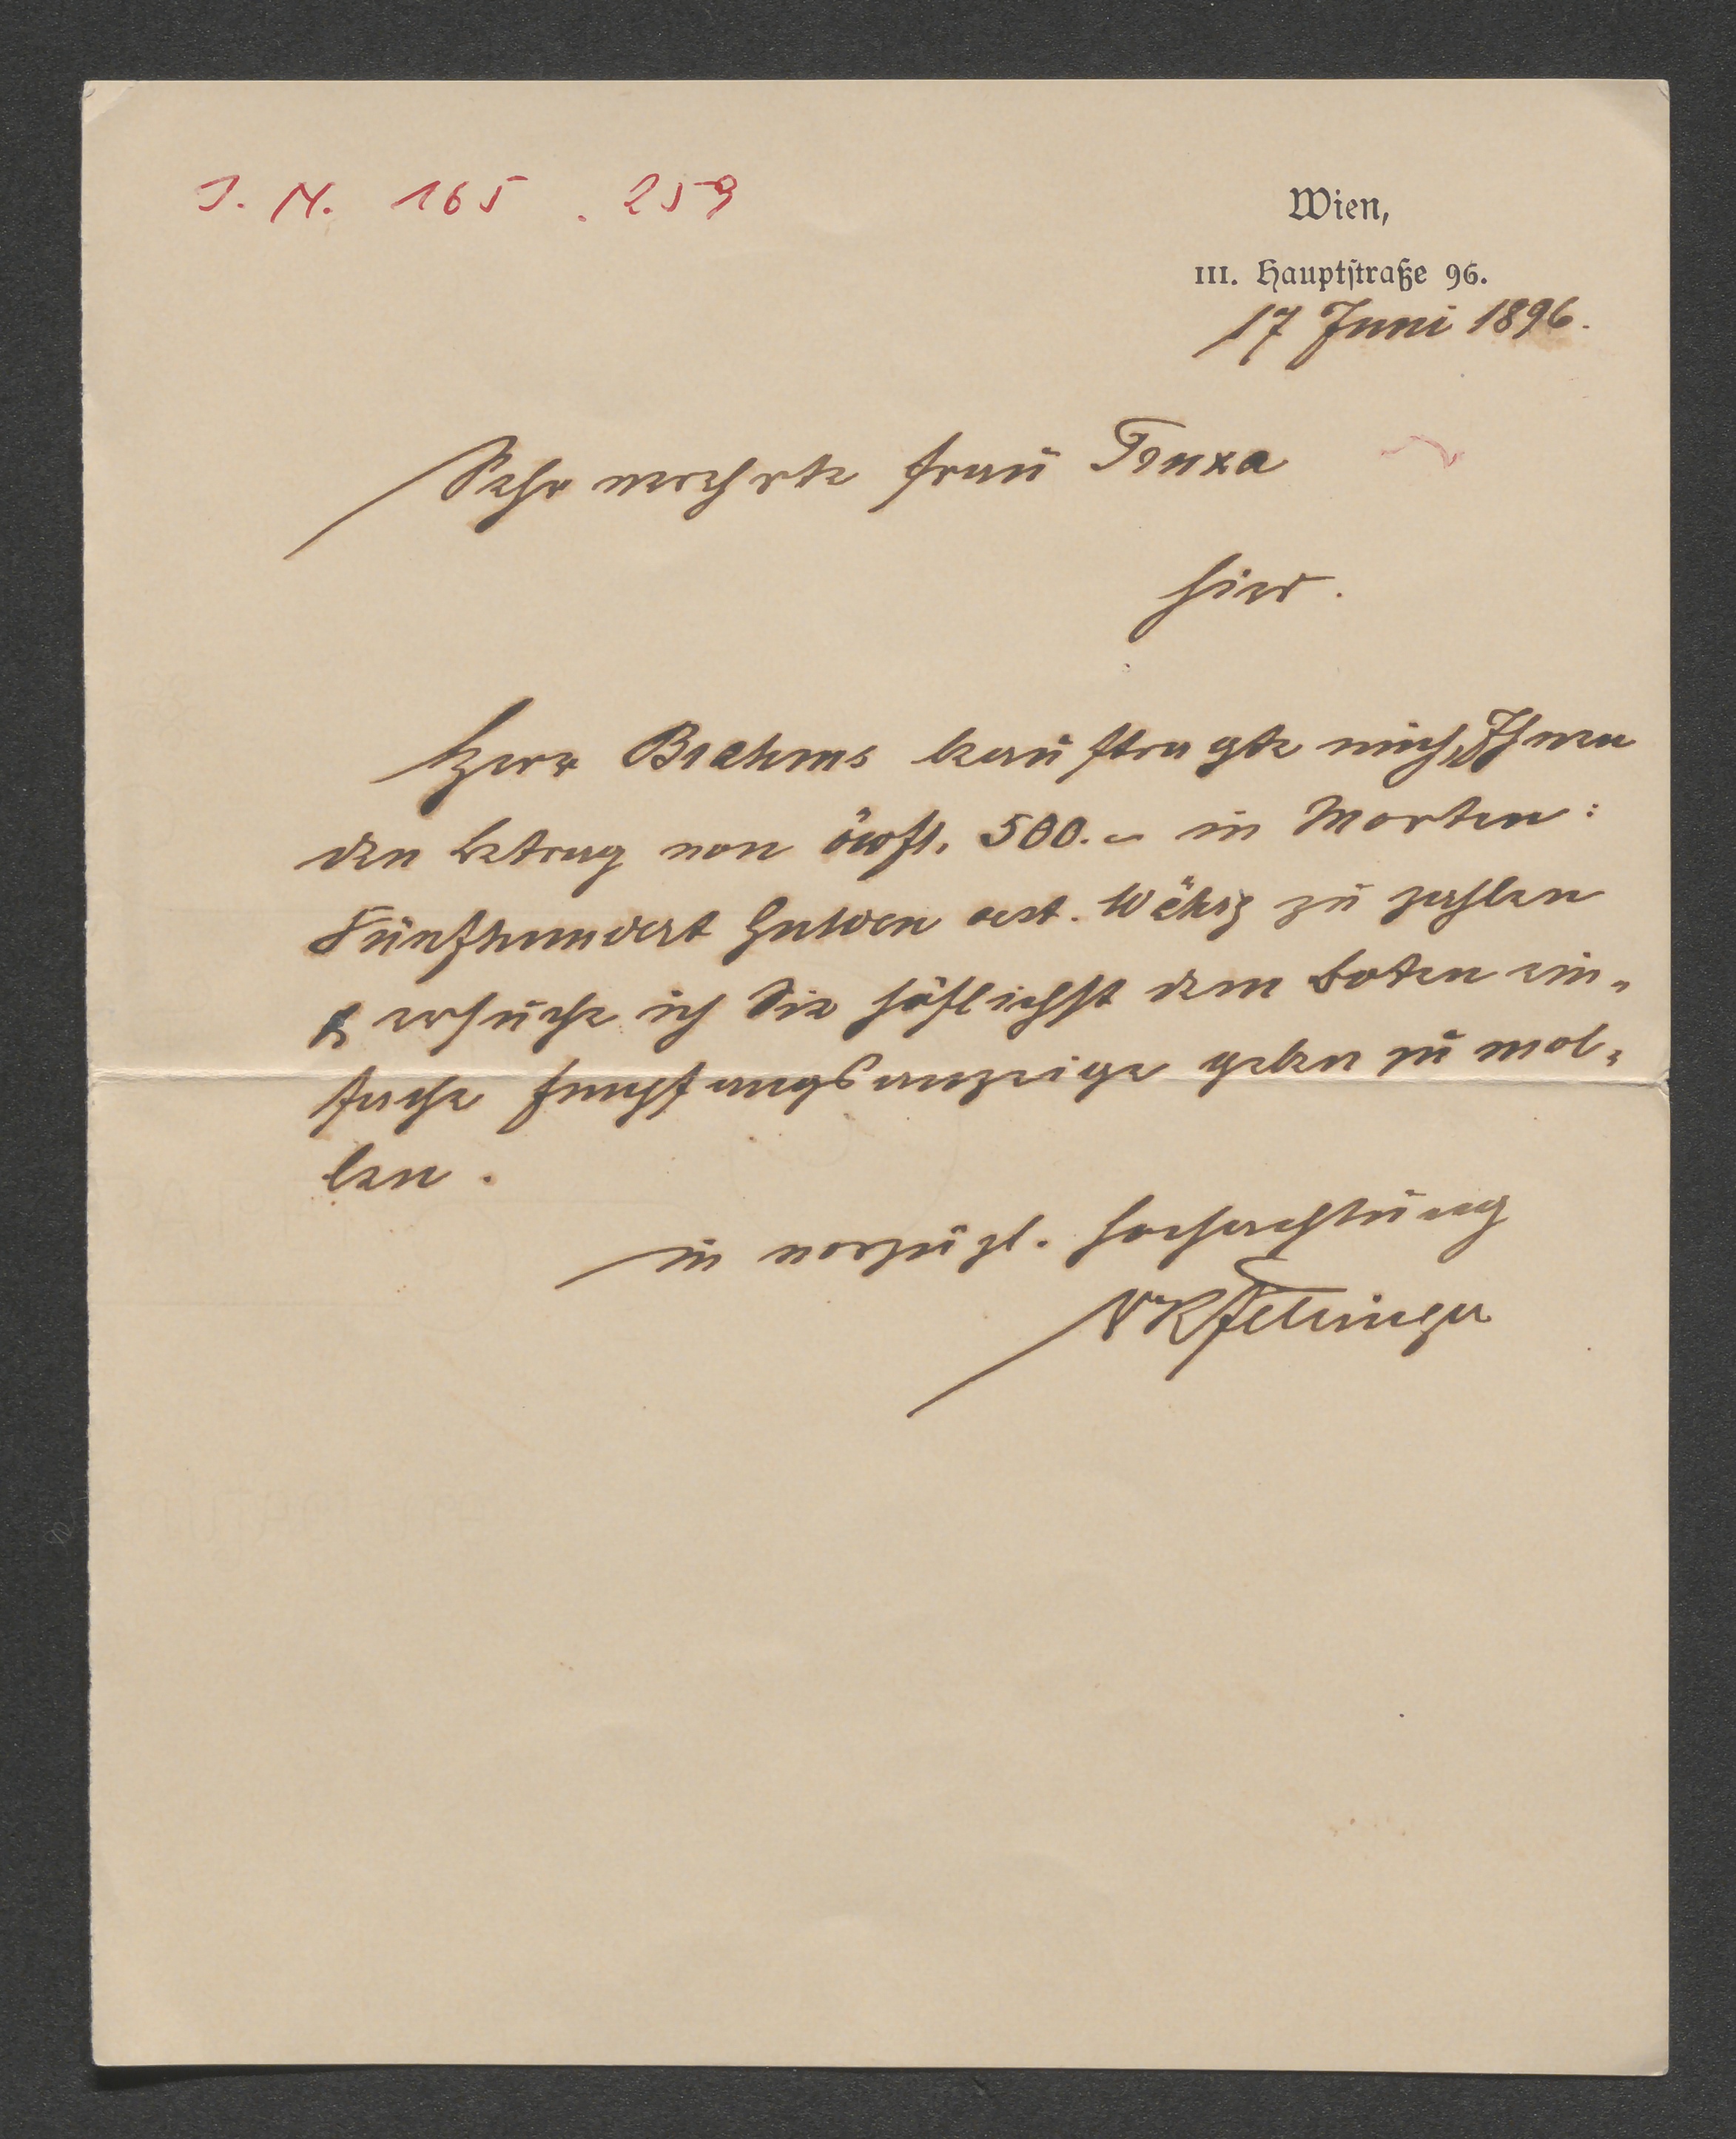 J. N. 165.259
Wien,
III. Hauptstraße 96.
17 Juni 1896.
Sehr verehrte Frau Truxa
hier.
Herr Brahms beauftragte mich, Ihnen
den Betrag von öwfl. 500.– in Worten:
Fünfhundert Gulden oest. Währg zu zahlen
& ersuche ich Sie höflichst dem Boten ein-
fache Empfangsanzeige geben zu wol-
len.
in vorzügl. Hochachtung
Dr R Fellinger